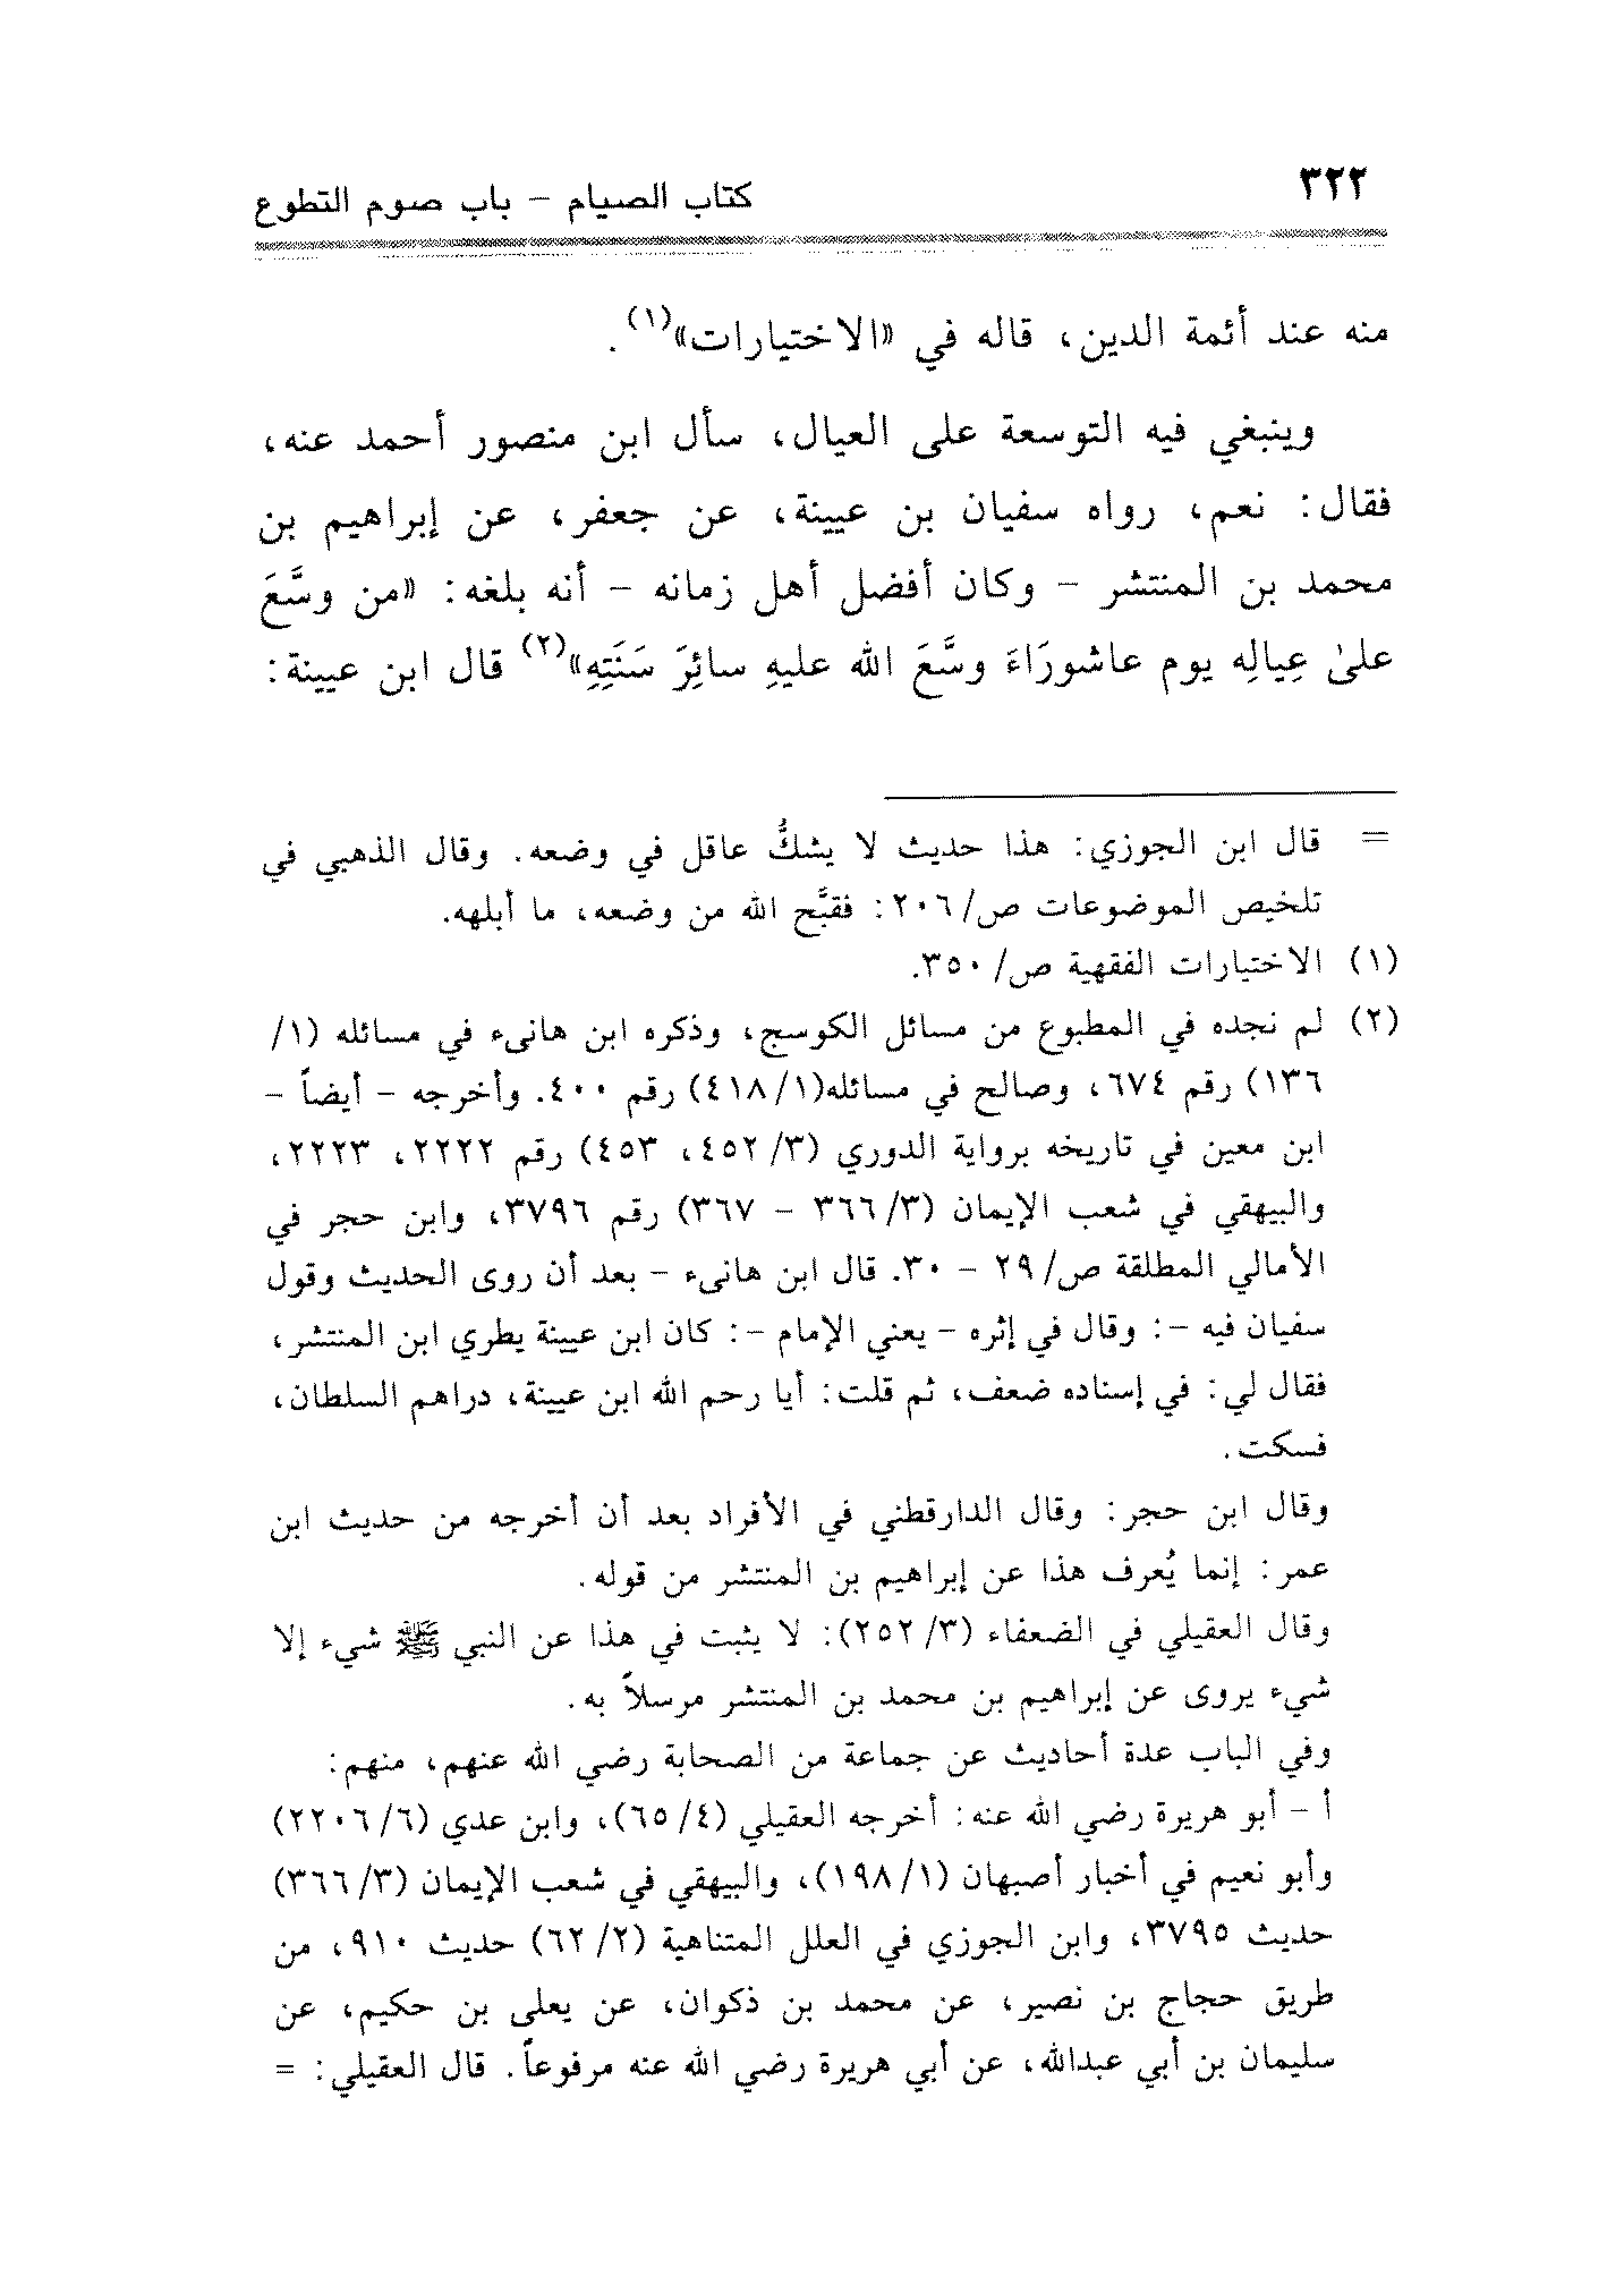 ٣٢٢
كتاب الصيام – باب صوم التطوع
منه عند أئمة الدين، قاله في «الاختيارات»(١).
وينبغي فيه التوسعة على العيال، سأل ابن منصور أحمد عنه،
فقال: نعم، رواه سفيان بن عيينة، عن جعفر، عن إبراهيم بن
محمد بن المنتشر – وكان أفضل أهل زمانه – أنه بلغه: «من وسَّعَ
علىٰ عِيالِه يوم عاشورَاءَ وسَّعَ الله عليهِ سائِرَ سَنَتِهِ»(٢) قال ابن عيينة:
= قال ابن الجوزي: هذا حديث لا يشكُّ عاقل في وضعه. وقال الذهبي في
تلخيص الموضوعات ص/ ٢٠٦: فقبَّح الله من وضعه، ما أبلهه.
(١) الاختيارات الفقهية ص/ ٣٥٠.
(٢) لم نجده في المطبوع من مسائل الكوسج، وذكره ابن هانىء في مسائله (١/
١٣٦) رقم ٦٧٤، وصالح في مسائله(١/ ٤١٨) رقم ٤٠٠. وأخرجه – أيضاً –
ابن معين في تاريخه برواية الدوري (٣/ ٤٥٢، ٤٥٣) رقم ٢٢٢٢، ٢٢٢٣،
والبيهقي في شعب الإيمان (٣/ ٣٦٦ – ٣٦٧) رقم ٣٧٩٦، وابن حجر في
الأمالي المطلقة ص/ ٢٩ – ٣٠. قال ابن هانىء – بعد أن روى الحديث وقول
سفيان فيه –: وقال في إثره – يعني الإمام –: كان ابن عيينة يطري ابن المنتشر،
فقال لي: في إسناده ضعف، ثم قلت: أيا رحم الله ابن عيينة، دراهم السلطان،
فسكت.
وقال ابن حجر: وقال الدارقطني في الأفراد بعد أن أخرجه من حديث ابن
عمر: إنما يُعرف هذا عن إبراهيم بن المنتشر من قوله.
وقال العقيلي في الضعفاء (٣/ ٢٥٢): لا يثبت في هذا عن النبي ﷺ شيء إلا
شيء يروى عن إبراهيم بن محمد بن المنتشر مرسلاً به.
وفي الباب عدة أحاديث عن جماعة من الصحابة رضي الله عنهم، منهم:
أ – أبو هريرة رضي الله عنه: أخرجه العقيلي (٤/ ٦٥)، وابن عدي (٦/ ٢٢٠٦)
وأبو نعيم في أخبار أصبهان (١/ ١٩٨)، والبيهقي في شعب الإيمان (٣/ ٣٦٦)
حديث ٣٧٩٥، وابن الجوزي في العلل المتناهية (٢/ ٦٢) حديث ٩١٠، من
طريق حجاج بن نصير، عن محمد بن ذكوان، عن يعلى بن حكيم، عن
سليمان بن أبي عبدالله، عن أبي هريرة رضي الله عنه مرفوعاً. قال العقيلي: =